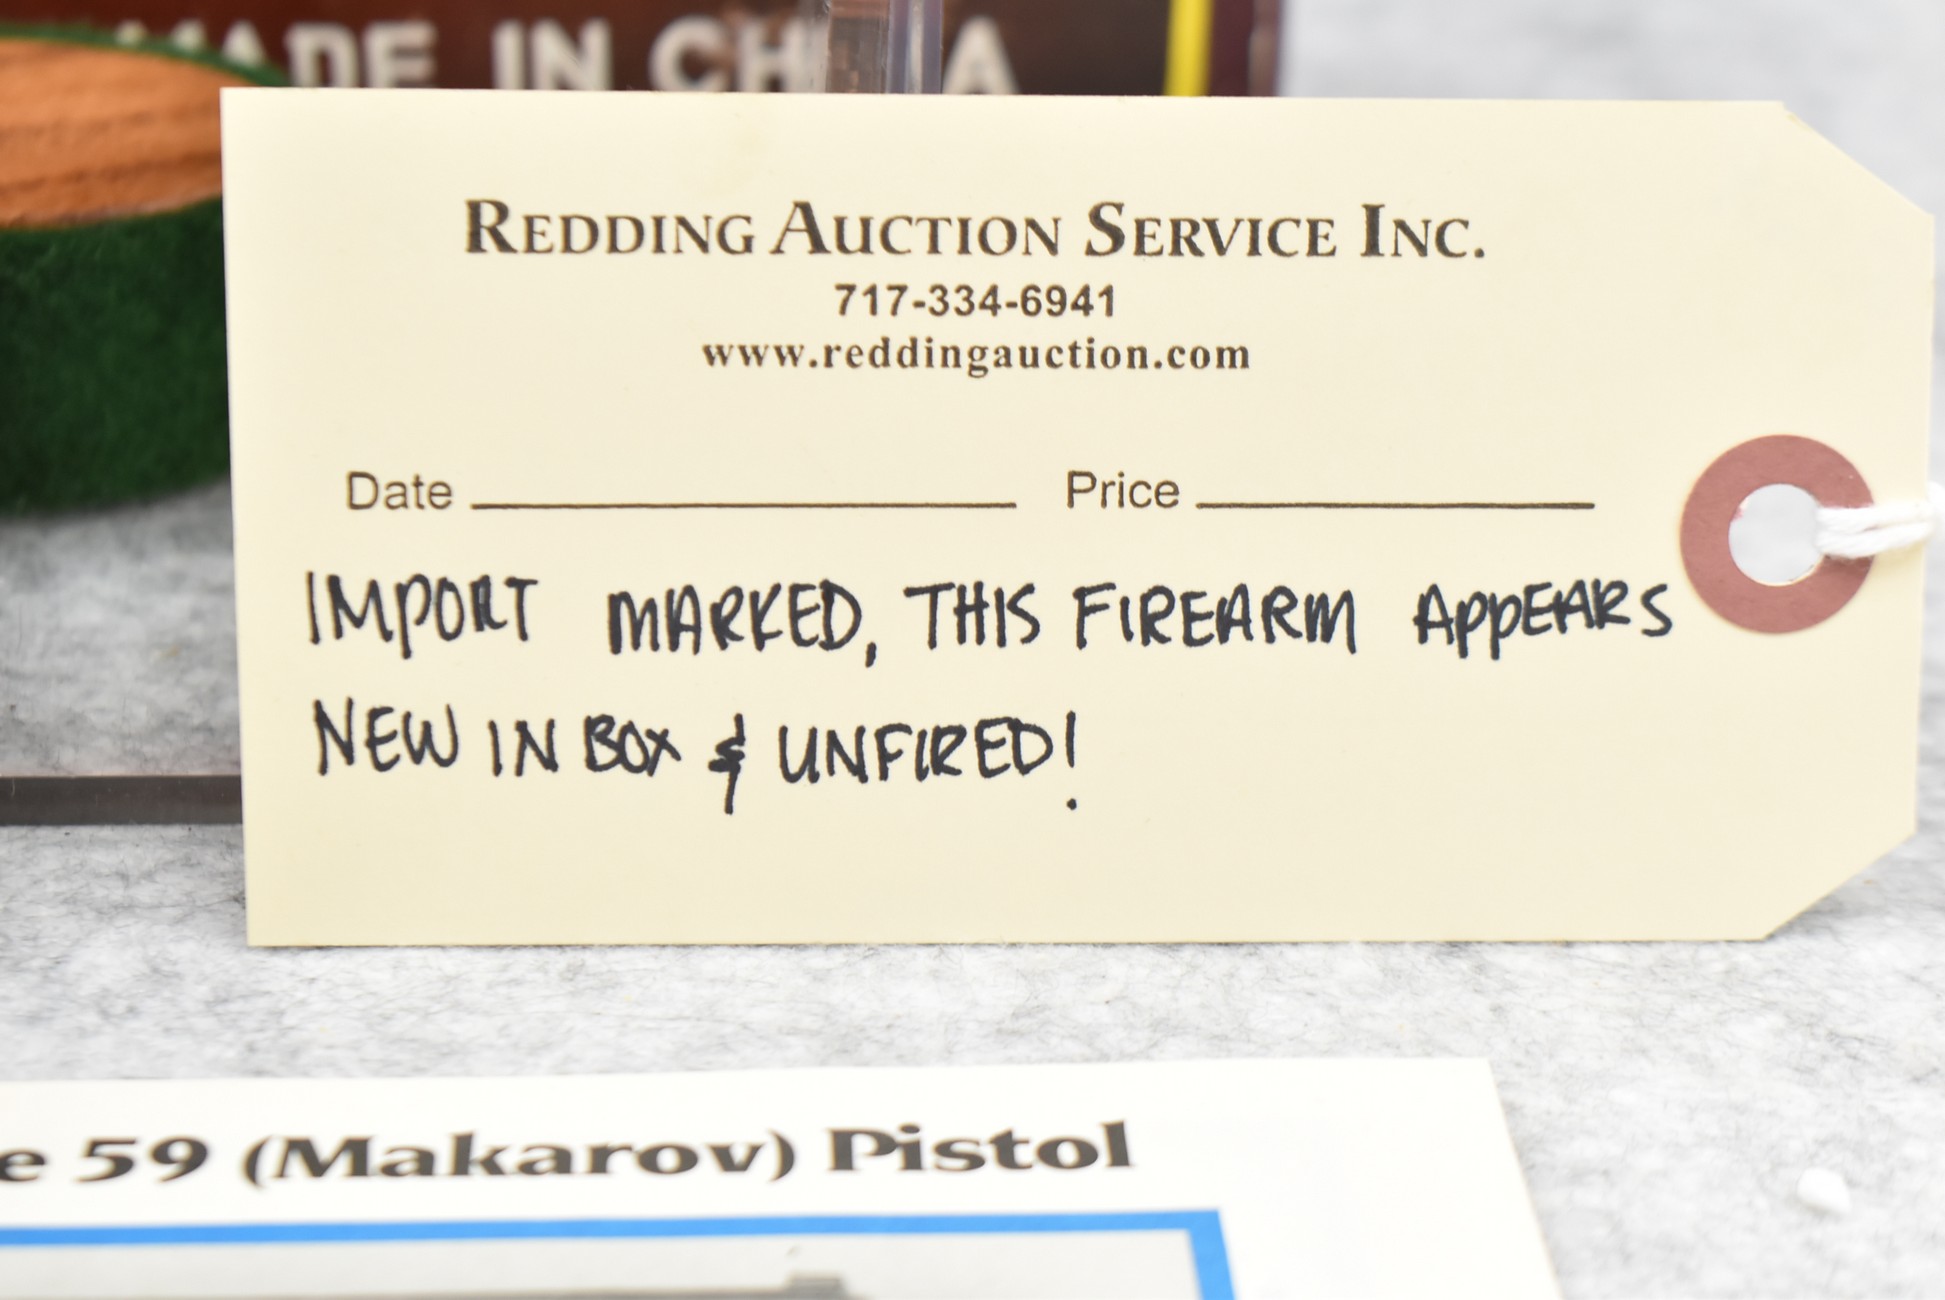 MADE IN CHINA
REDDING AUCTION SERVICE INC.
717-334-6941
www.reddingauction.com
Date Price
IMPORT MARKED, THIS FIREARM APPEARS
NEW IN BOX & UNFIRED!
e 59 (Makarov) Pistol